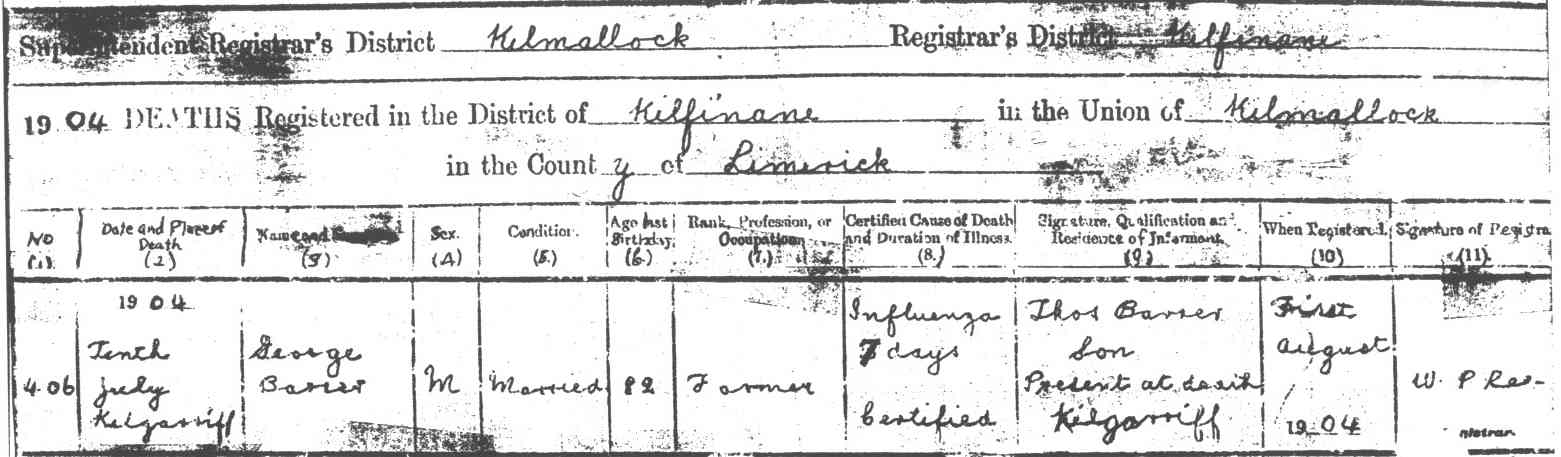 Superintendent Registrar's District Kilmallock Registrar's District Kilfinane
19 04 DEATHS Registered in the District of Kilfinane in the Union of Kilmallock
in the County of Limerick
No (1). Date and Place of Death (2) Name and (3) Sex. (4) Condition. (5.) Age last Birthday. (6.) Rank, Profession, or Occupation (7.) Certified Cause of Death and Duration of Illness. (8.) Signature, Qualification and Residence of Informant. (9.) When Registered. (10) Signature of Registra (11)
406
19 04
Tenth
July
Kilgarriff
George
M
Married
82
Farmer
Influenza
7 days
Certified
Thos
Son
Present at death
Kilgarriff
First
August
19 04
W. P